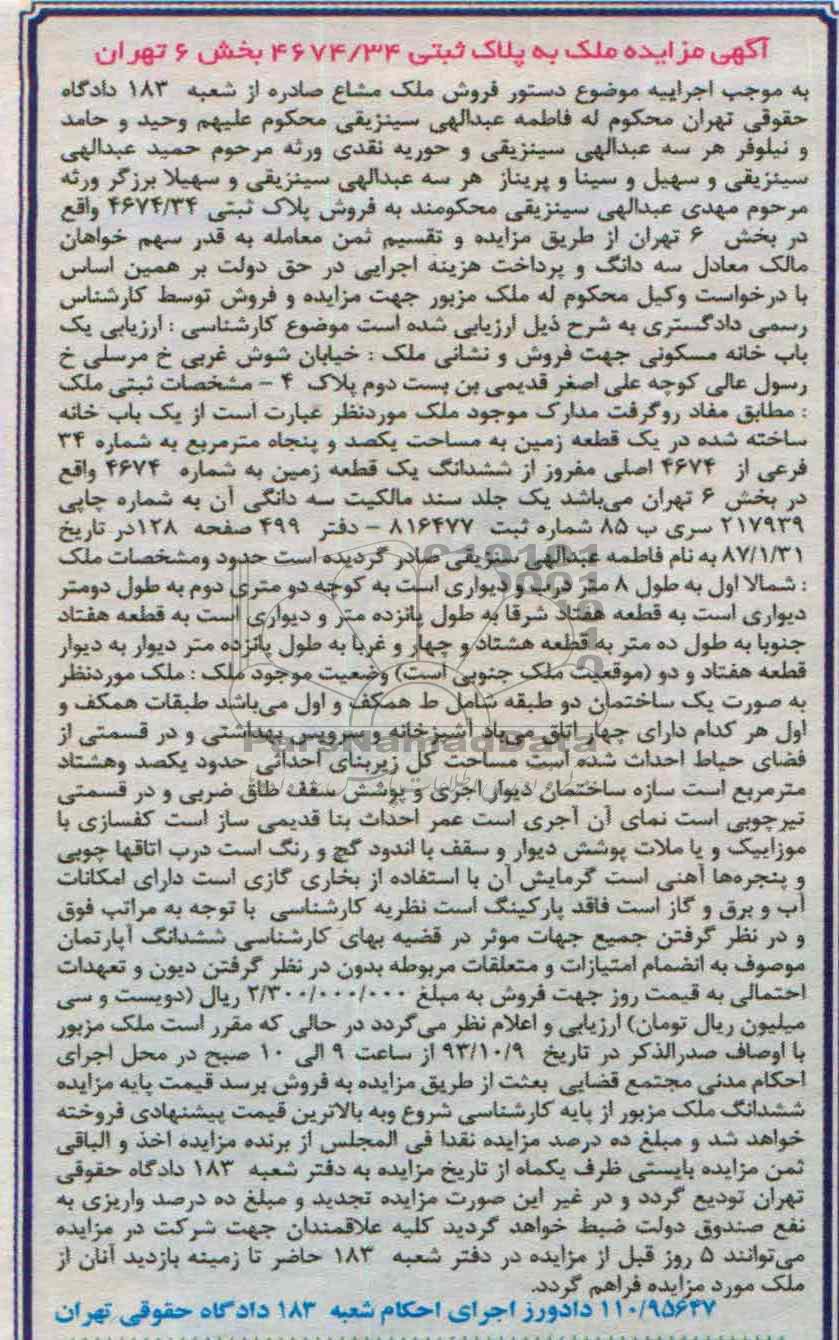 آگهی مزایده ملک به پلاک ثبتی ۴۶۷۴/۳۴ بخش ۶ تهران
به موجب اجراییه موضوع دستور فروش ملک مشاع صادره از شعبه ۱۸۳ دادگاه
حقوقی تهران محکوم له فاطمه عبدالهی سینزیقی محکوم علیهم وحید و حامد
و نیلوفر هر سه عبدالهی سینزیقی و حوریه نقدی ورثه مرحوم حمید عبدالهی
سینزیقی و سهیل و سینا و پریناز هر سه عبدالهی سینزیقی و سهیلا برزگر ورثه
مرحوم مهدی عبدالهی سینزیقی محکومند به فروش پلاک ثبتی ۴۶۷۴/۳۴ واقع
در بخش ۶ تهران از طریق مزایده و تقسیم ثمن معامله به قدر سهم خواهان
مالک معادل سه دانگ و پرداخت هزینه اجرایی در حق دولت بر همین اساس
با درخواست وکیل محکوم له ملک مزبور جهت مزایده و فروش توسط کارشناس
رسمی دادگستری به شرح ذیل ارزیابی شده است موضوع کارشناسی : ارزیابی یک
باب خانه مسکونی جهت فروش و نشانی ملک : خیابان شوش غربی خ مرسلی خ
رسول عالی کوچه علی اصغر قدیمی بن بست دوم پلاک ۴ - مشخصات ثبتی ملک
: مطابق مفاد روگرفت مدارک موجود ملک موردنظر عبارت است از یک باب خانه
ساخته شده در یک قطعه زمین به مساحت یکصد و پنجاه مترمربع به شماره ۳۴
فرعی از ۴۶۷۴ اصلی مفروز از ششدانگ یک قطعه زمین به شماره ۴۶۷۴ واقع
در بخش ۶ تهران می‌باشد یک جلد سند مالکیت سه دانگی آن به شماره چاپی
۲۱۷۹۳۹ سری ب ۸۵ شماره ثبت ۸۱۶۴۷۷ - دفتر ۴۹۹ صفحه ۱۲۸در تاریخ
۸۷/۱/۳۱ به نام فاطمه عبدالهی سنزیقی صادر گردیده است حدود ومشخصات ملک
: شمالا اول به طول ۸ متر درب و دیواری است به کوچه دو متری دوم به طول دومتر
دیواری است به قطعه هفتاد شرقا به طول پانزده متر و دیواری است به قطعه هفتاد
جنوبا به طول ده متر به قطعه هشتاد و چهار و غربا به طول پانزده متر دیوار به دیوار
قطعه هفتاد و دو (موقعیت ملک جنوبی است) وضعیت موجود ملک : ملک موردنظر
به صورت یک ساختمان دو طبقه شامل ط همکف و اول می‌باشد طبقات همکف و
اول هر کدام دارای چهار اتاق می‌باد آشپزخانه و سرویس بهداشتی و در قسمتی از
فضای حیاط احداث شده است مساحت کل زیربنای احداثی حدود یکصد وهشتاد
مترمربع است سازه ساختمان دیوار اجری و پوشش سقف طاق ضربی و در قسمتی
تیرچوبی است نمای آن آجری است عمر احداث بنا قدیمی ساز است کفسازی با
موزاییک و یا ملات پوشش دیوار و سقف با اندود گچ و رنگ است درب اتاقها چوبی
و پنجره‌ها آهنی است گرمایش آن با استفاده از بخاری گازی است دارای امکانات
آب و برق و گاز است فاقد پارکینگ است نظریه کارشناسی با توجه به مراتب فوق
و در نظر گرفتن جمیع جهات موثر در قضیه بهای کارشناسی ششدانگ آپارتمان
موصوف به انضمام امتیازات و متعلقات مربوطه بدون در نظر گرفتن دیون و تعهدات
احتمالی به قیمت روز جهت فروش به مبلغ ۲/۳۰۰/۰۰۰/۰۰۰ ریال (دویست و سی
میلیون ریال تومان) ارزیابی و اعلام نظر می‌گردد در حالی که مقرر است ملک مزبور
با اوصاف صدرالذکر در تاریخ ۹۳/۱۰/۹ از ساعت ۹ الی ۱۰ صبح در محل اجرای
احکام مدنی مجتمع قضایی بعثت از طریق مزایده به فروش برسد قیمت پایه مزایده
ششدانگ ملک مزبور از پایه کارشناسی شروع وبه بالاترین قیمت پیشنهادی فروخته
خواهد شد و مبلغ ده درصد مزایده نقدا فی المجلس از برنده مزایده اخذ و الباقی
ثمن مزایده بایستی ظرف یکماه از تاریخ مزایده به دفتر شعبه ۱۸۳ دادگاه حقوقی
تهران تودیع گردد و در غیر این صورت مزایده تجدید و مبلغ ده درصد واریزی به
نفع صندوق دولت ضبط خواهد گردید کلیه علاقمندان جهت شرکت در مزایده
می‌توانند ۵ روز قبل از مزایده در دفتر شعبه ۱۸۳ حاضر تا زمینه بازدید آنان از
ملک مورد مزایده فراهم گردد.
۱۱۰/۹۵۶۴۷ دادورز اجرای احکام شعبه ۱۸۳ دادگاه حقوقی تهران
ParsNamadData